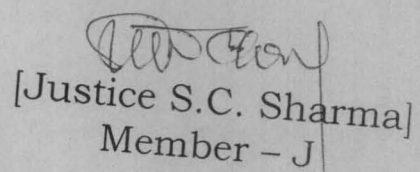 [Justice S.C. Sharma]
Member – J